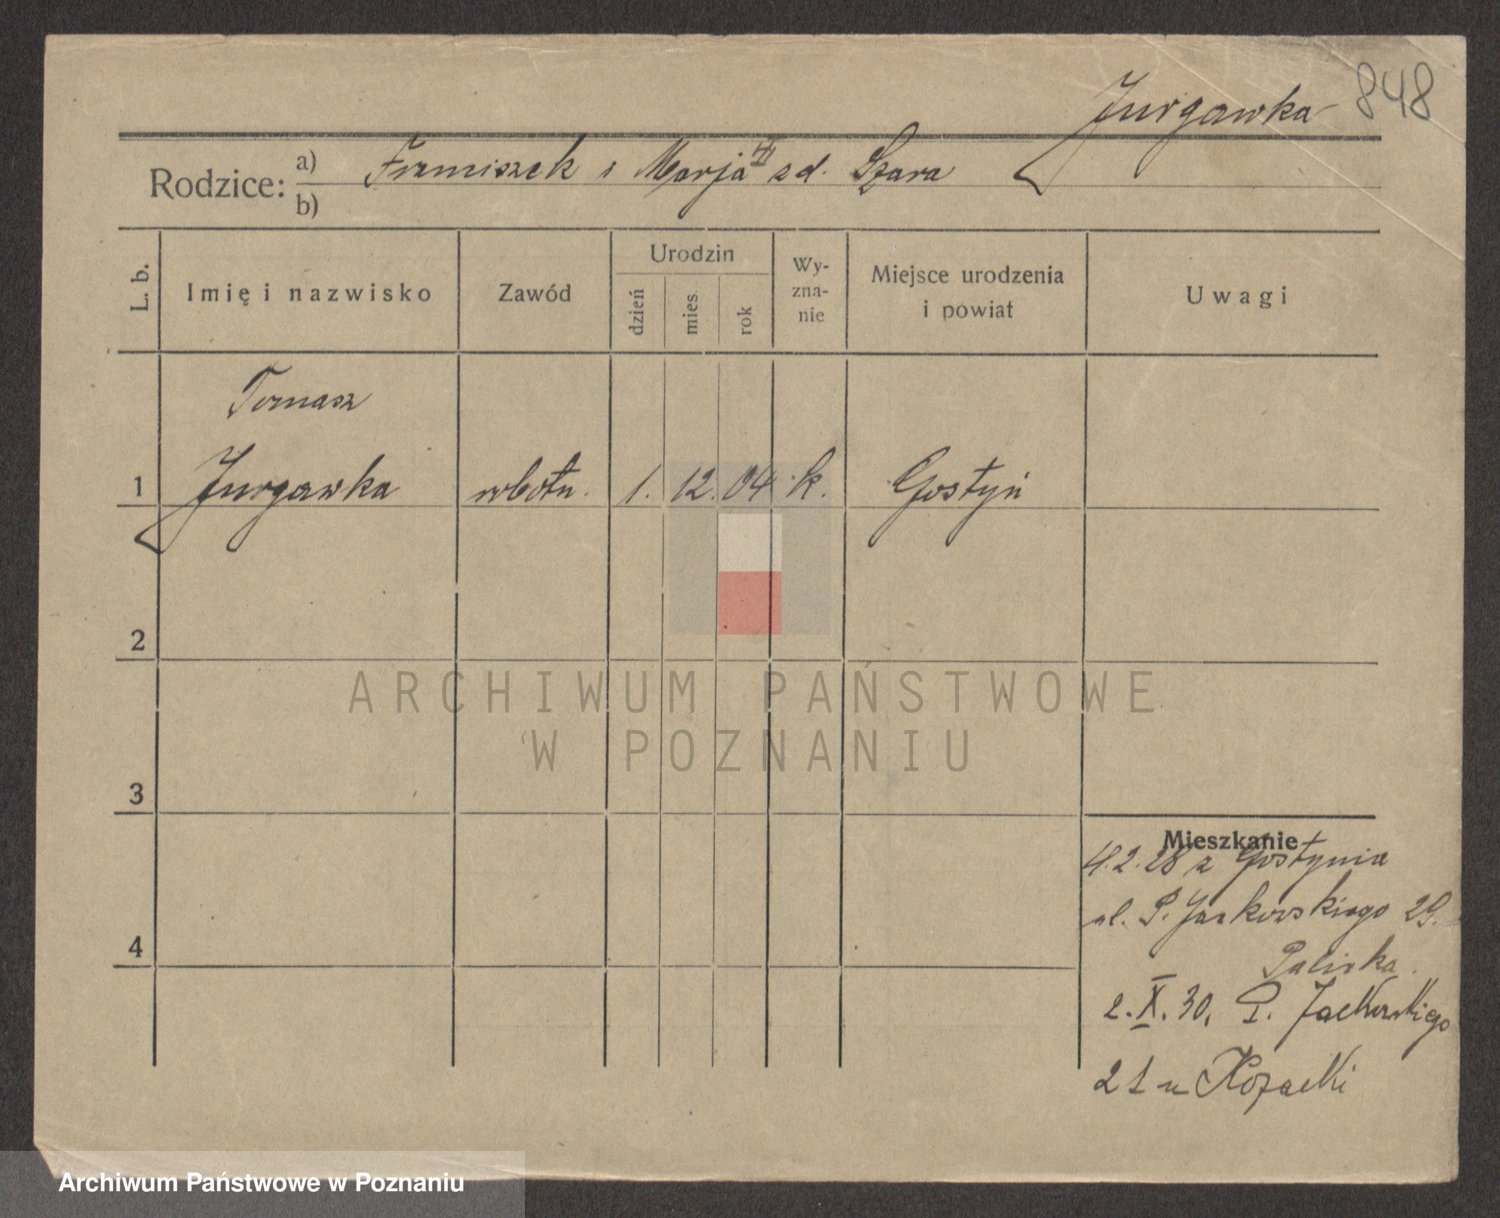 Jurgawka 848
Rodzice: a) Franciszek i Marja zd. Szara
b)
L. b.
Imię i nazwisko
Zawód
Urodzin
dzień
mies
rok
Wy-
zna-
nie
Miejsce urodzenia
i powiat
Uwagi
Tomasz
1 Jurgawka robotn. 1. 12. 04 k. Gostyń
2
3
4
Mieszkanie
4.2.28 z Gostynia
ul. P. Jackowskiego 29.
2.X.30, P. Jackowskiego
21 u Kozacki
ARCHIWUM PAŃSTWOWE
W POZNANIU
Archiwum Państwowe w Poznaniu